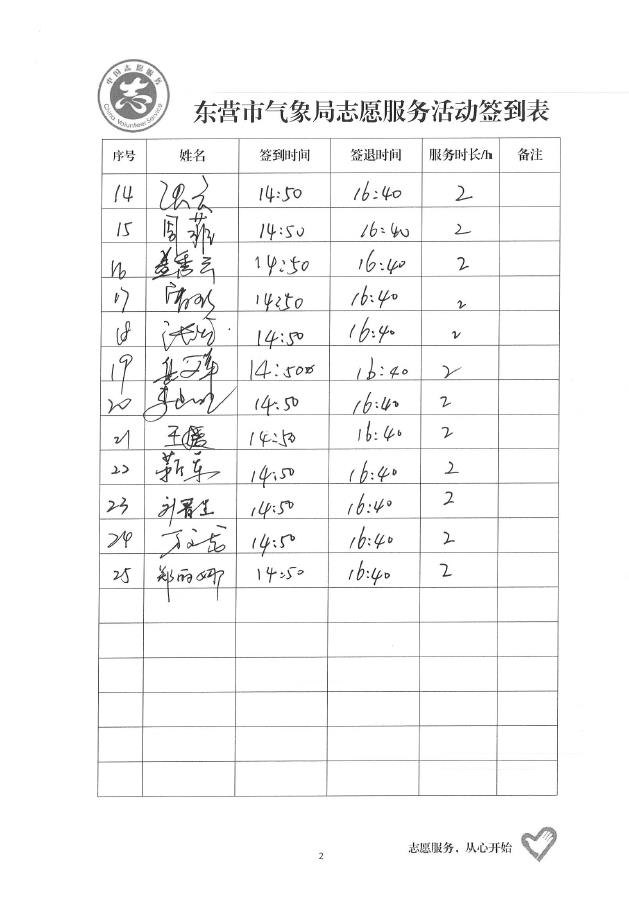 中国志愿服务
China Volunteer Service
东营市气象局志愿服务活动签到表
序号 姓名 签到时间 签退时间 服务时长/h 备注
14 14:50 16:40 2
15 周菲 14:50 16:40 2
16 14:50 16:40 2
17 14:50 16:40 2
18 14:50 16:40 2
19 14:50 16:40 2
20 14:50 16:40 2
21 王媛 14:50 16:40 2
22 靳军 14:50 16:40 2
23 14:50 16:40 2
24 14:50 16:40 2
25 郑丽娜 14:50 16:40 2
志愿服务，从心开始
2